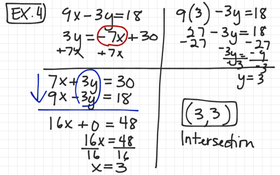 EX. 4
9x - 3y = 18
3y = -7x + 30
+7x +7x
7x + 3y = 30
9x - 3y = 18
16x + 0 = 48
16x = 48
16 16
x = 3
9(3) - 3y = 18
27 - 3y = 18
-27 -27
-3y = -9
-3 -3
y = 3
(3,3)
Intersection